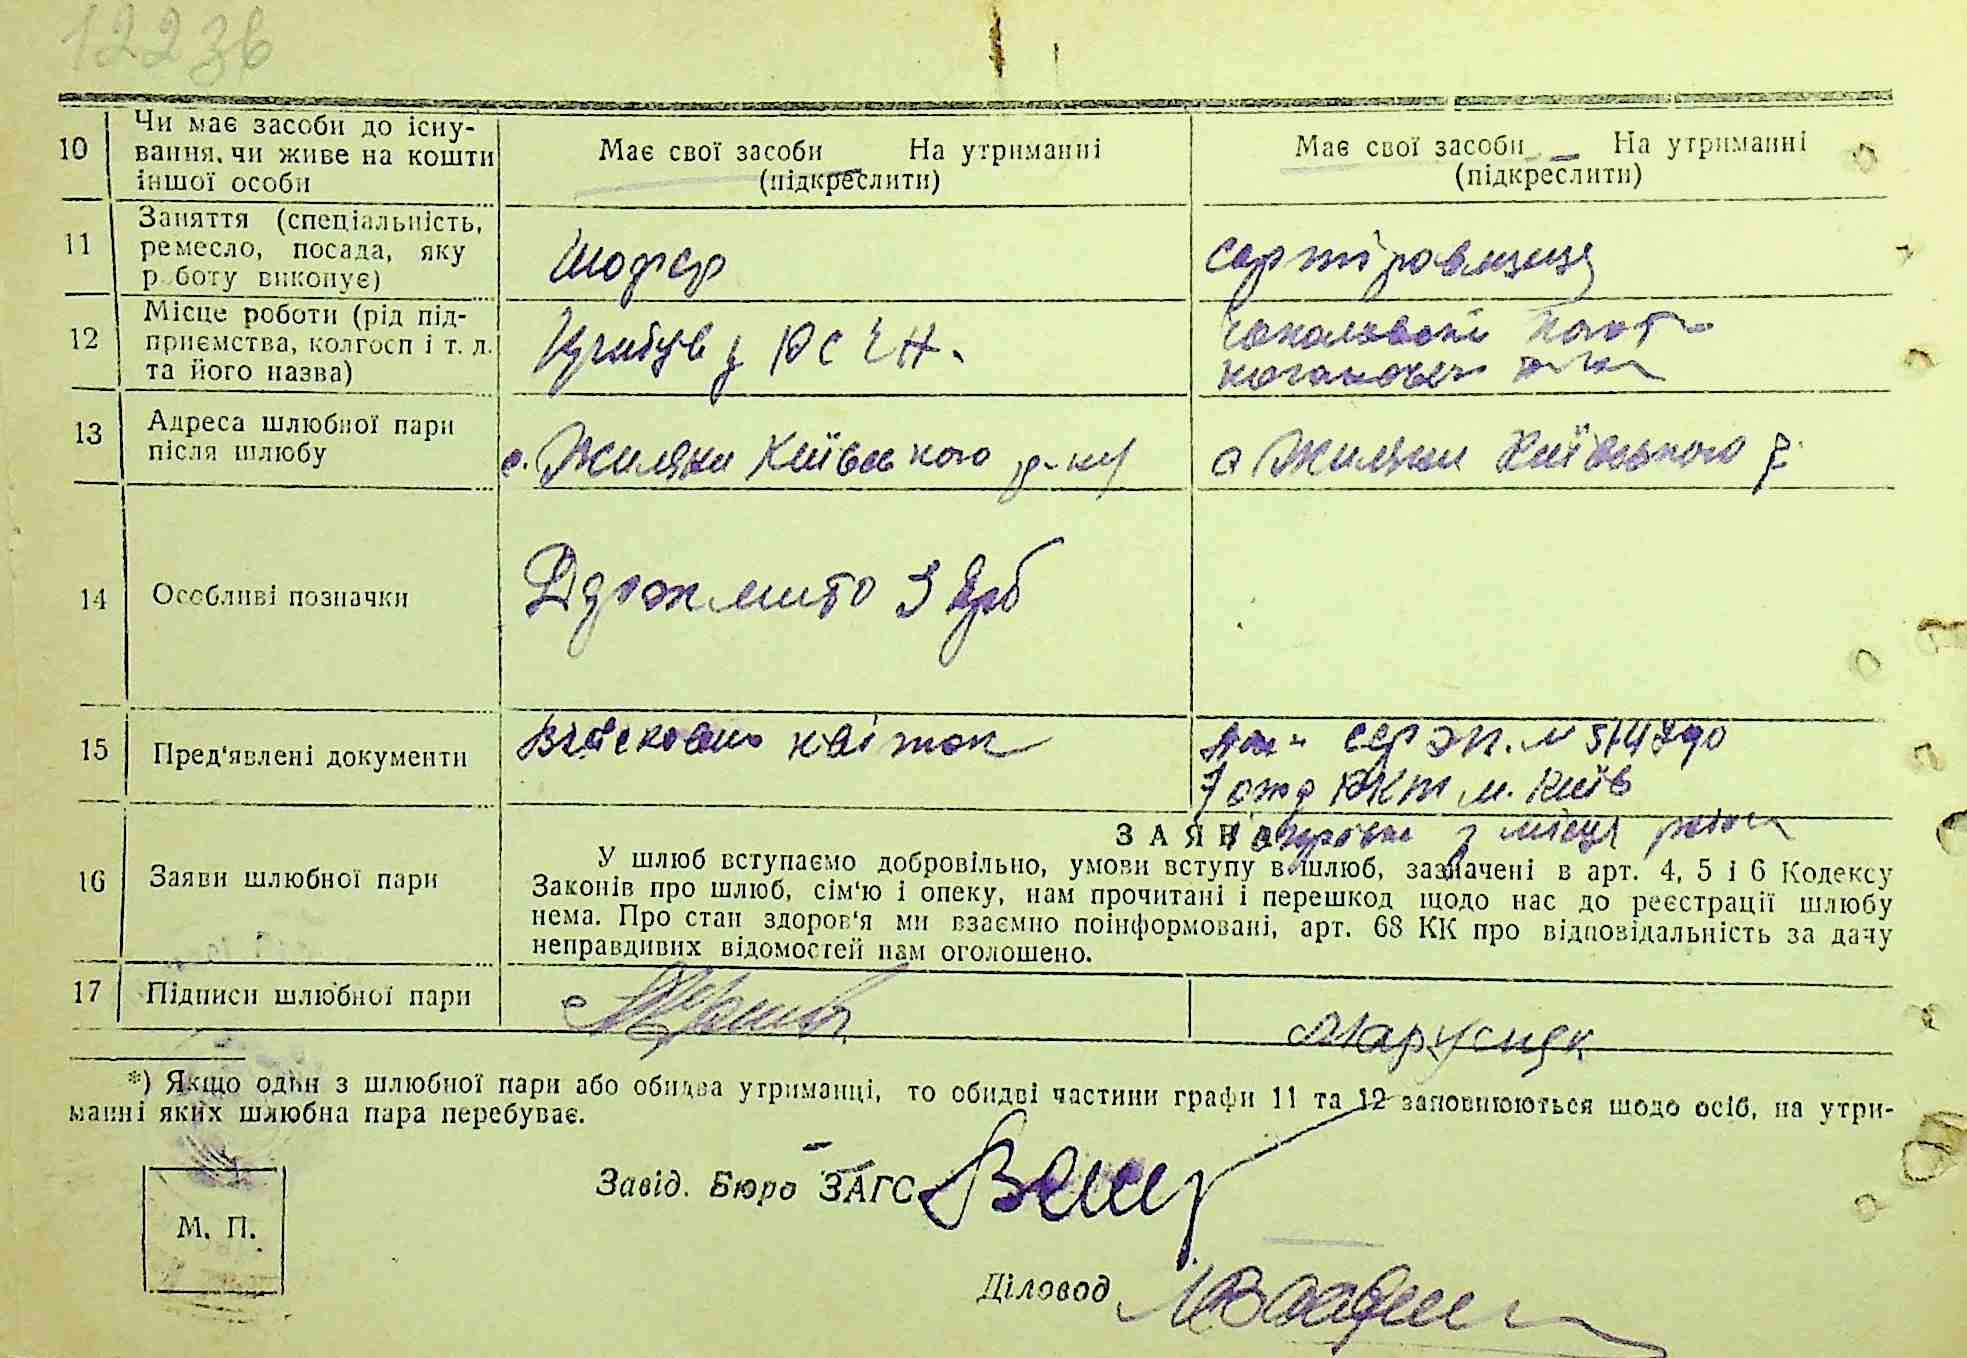 122зв
10 Чи має засоби до існу-
вання, чи живе на кошти
іншої особи
Має свої засоби На утриманні
(підкреслити)
Має свої засоби На утриманні
(підкреслити)
11 Заняття (спеціальність,
ремесло, посада, яку
р боту виконує)
Шофер
сортіровщиця
12 Місце роботи (рід під-
приємства, колгосп і т. д.
та його назва)
13 Адреса шлюбної пари
після шлюбу
с. Жиляни Київського р-ну
с Жиляни Київського р.
14 Особливі позначки
Держмито 3 крб
15 Пред'явлені документи
Військовий квіток
м. Київ
з місця
16 Заяви шлюбної пари
ЗАЯВА
У шлюб вступаємо добровільно, умови вступу в шлюб, зазначені в арт. 4, 5 і 6 Кодексу
Законів про шлюб, сім'ю і опеку, нам прочитані і перешкод щодо нас до реєстрації шлюбу
нема. Про стан здоров'я ми взаємно поінформовані, арт. 68 КК про відповідальність за дачу
неправдивих відомостей нам оголошено.
17 Підписи шлюбної пари
Марусицк
*) Якщо один з шлюбної пари або обидва утриманці, то обидві частини графи 11 та 12 заповнюються щодо осіб, на утри-
манні яких шлюбна пара перебуває.
Завід. Бюро ЗАГС
М. П.
Діловод